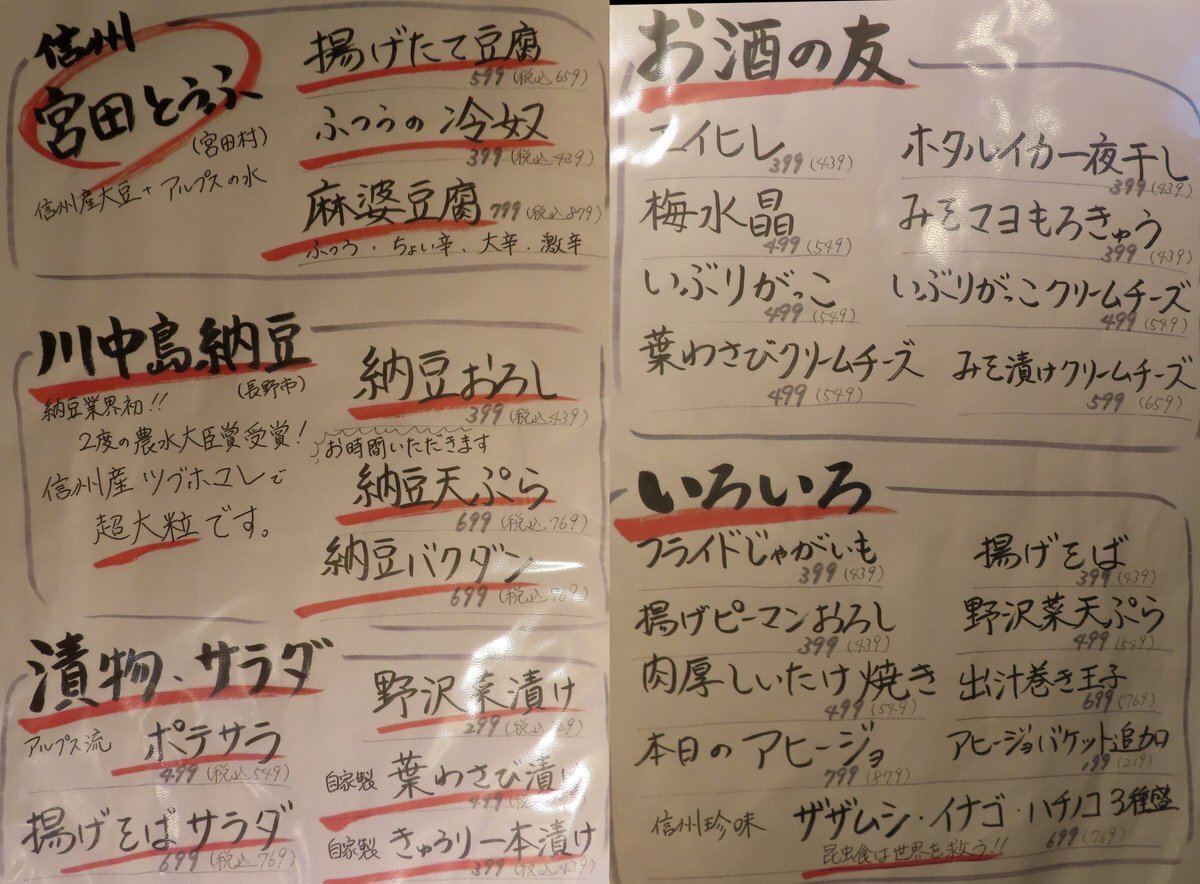 信州
宮田とうふ
(宮田村)
信州産大豆+アルプスの水
揚げたて豆腐
599(税込659)
ふつうの冷奴
399(税込439)
麻婆豆腐 799(税込879)
ふつう・ちょい辛・大辛・激辛
川中島納豆
(長野市)
納豆業界初!!
2度の農水大臣賞受賞!
信州産ツブホマレで
超大粒です。
納豆おろし
399(税込439)
お時間いただきます
納豆天ぷら
699(税込769)
納豆バクダン
699(税込769)
漬物、サラダ
アルプス流 ポテサラ
499(税込549)
揚げそばサラダ
699(税込769)
野沢菜漬け
299(税込
自家製 葉わさび漬け
499(税込
自家製 きゅうり一本漬け
399(税込439)
お酒の友
エイヒレ
399(439)
梅水晶
499(549)
いぶりがっこ
499(549)
葉わさびクリームチーズ
499(549)
ホタルイカ一夜干し
399(439)
みそマヨもろきゅう
399(439)
いぶりがっこクリームチーズ
499(549)
みそ漬けクリームチーズ
599(659)
いろいろ
フライドじゃがいも
399(439)
揚げピーマンおろし
399(439)
肉厚しいたけ焼き
499(549)
本日のアヒージョ
799(879)
揚げそば
399(439)
野沢菜天ぷら
499(549)
出汁巻き玉子
699(769)
アヒージョバケット追加
199(219)
信州珍味 ザザムシ・イナゴ・ハチノコ3種盛
699(769)
昆虫食は世界を救う!!